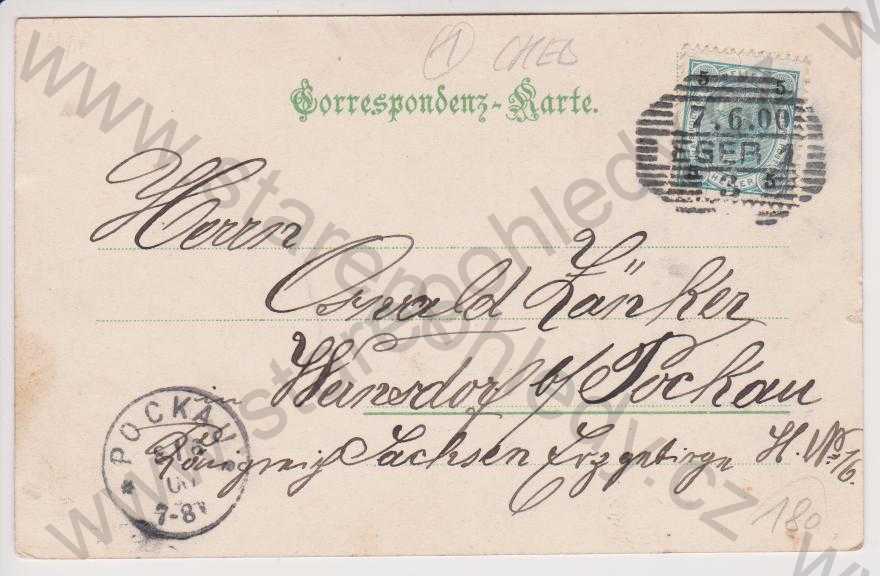 ① CHEB
Correspondenz-Karte.
5 5
7.6.00
EGER 1
HELLER 5
Herrn
Oswald Zänker
in Wernsdorf b/ Pockau
Königreich Sachsen Erzgebirge H. No 16.
POCKAU
00
7-8V
180
www.starepohledy.cz